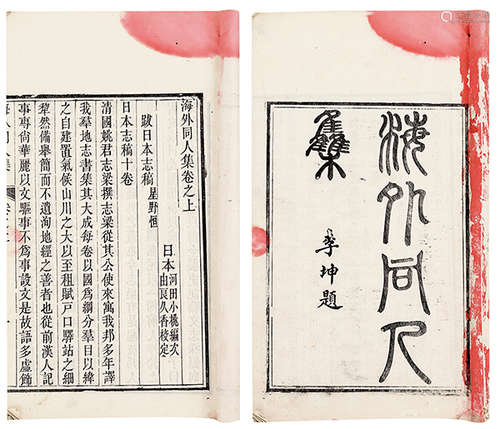 海外同人集卷之上
日本 河田小桃編次
由良久香校定
跋日本志稿 星野恒
日本志稿十卷
清國姚君志梁撰志梁從其公使來寓我邦多年譯
我羣地志書集其大成每卷以國爲綱分羣目以緯
之自建置氣候山川之大以至租賦戶口驛站之細
犂然備舉簡而不遺洵地經之善者也從前漢人記
事專尚華麗以文驅事不爲事設文是故語多虛飾
海外同人
集
李坤題